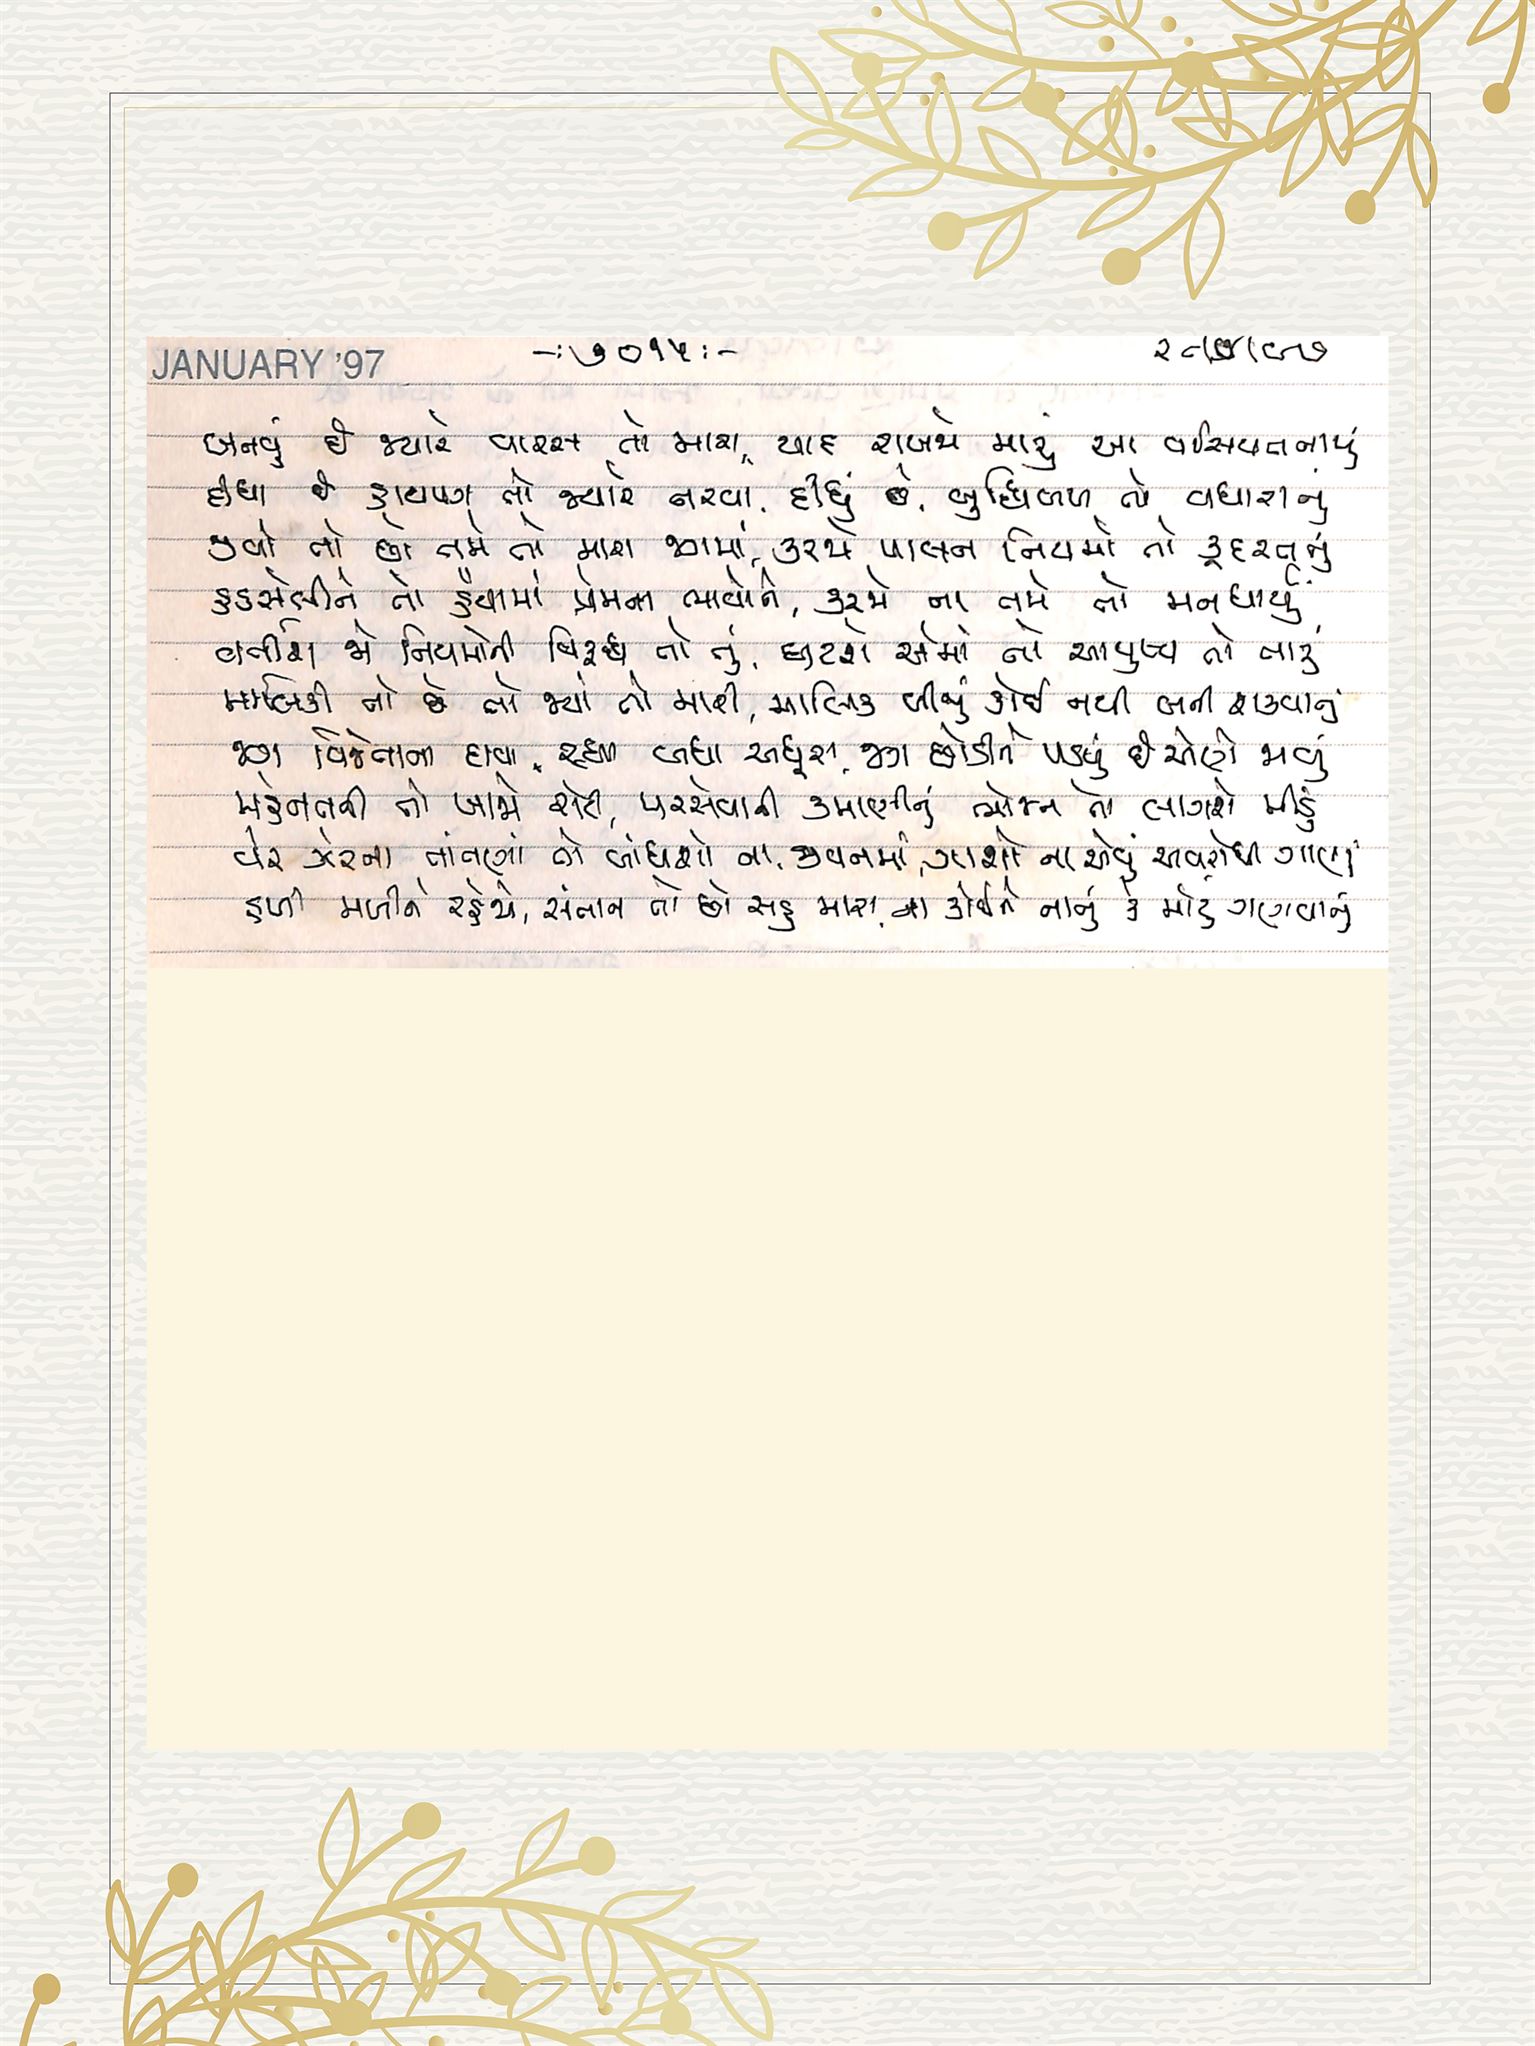 JANUARY '97
-: ૭૦૧૫ :-
બનવું છે જ્યારે વારસ તો મારા, યાદ રાખજે મારું આ વસિયતનામું
દીધા છે હાથપગ તો જ્યારે નરવા, દીધું છે, બુદ્ધિબળ તો વધારાનું
જીવો તો છો તમે તો મારા જગમાં, કરજે પાલન નિયમો તો કુદરતનું
હડસેલીને તો હૈયામાં પ્રેમના ભાવોને, કરજે ના તમે તો મનધાર્યું
વર્તીશ જો નિયમોની વિરૂદ્ધ તો તું, ઘટશે એમાં તો આયુષ્ય તો તારું
માલિકી તો છે તો જ્યાં તો મારી, માલિક બીજું કોઈ નથી બની શકવાનું
જગ વિજેતાના દાવા, રહ્યા બધા અધૂરા, જગ છોડીને પડયું છે એણે જવું
મહેનતની તો ખાજે રોટી, પરસેવાની કમાણીનું ભોજન તો લાગશે મીઠું
વેર ઝેરના તાંતણાં તો બાંધશો ના જીવનમાં, ગાશો ના એવું અવરોધી ગાણું
હળી મળીને રહેજે, સંતાન તો છો સહુ મારા, ના કોઈને નાનું કે મોટું ગણવાનું